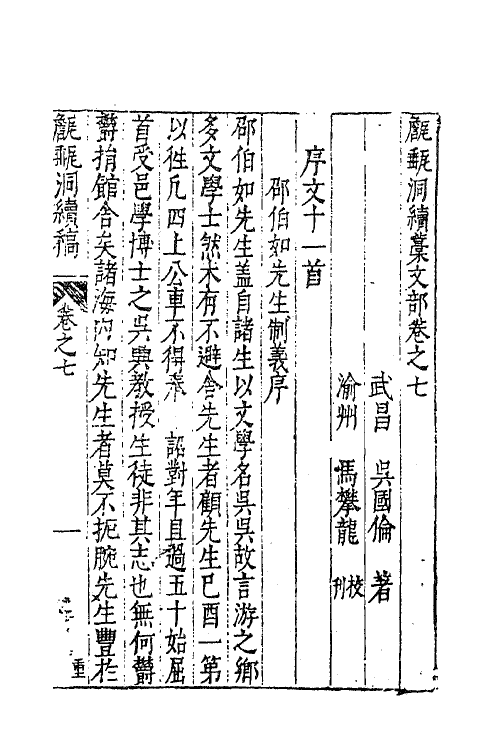 甔甀洞續藁文部卷之七
武昌　吳國倫　著
渝州　馬攀龍　校刊
序文十一首
邵伯如先生制義序
邵伯如先生蓋自諸生以文學名吳吳故言游之鄉
多文學士然未有不避舍先生者顧先生已酉一第
以徃凡四上公車不得奉　詔對年且過五十始屈
首受邑學博士之吳興教授生徒非其志也無何欝
欝捐館舍矣諸海內知先生者莫不扼腕先生豐於
甔甀洞續稿
卷之七
一
重